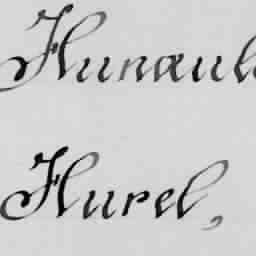 Hunaul
Hurel,